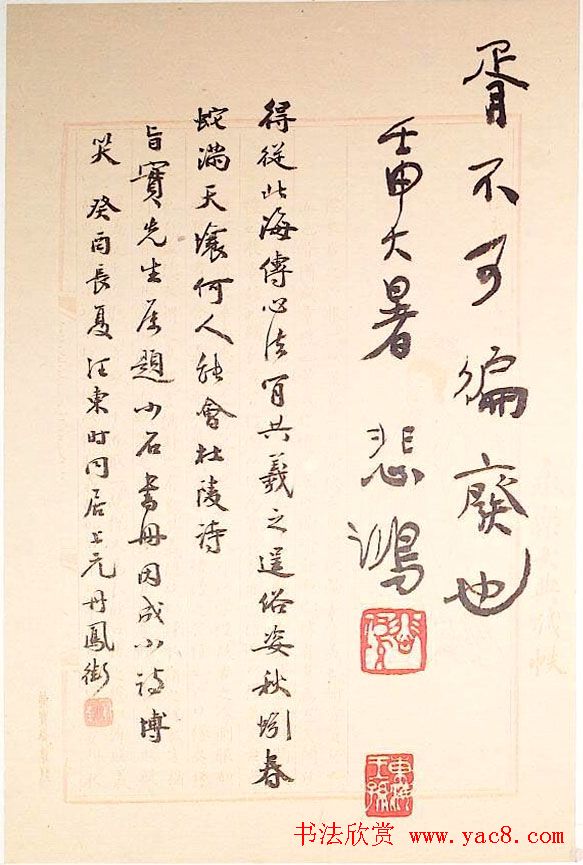 胥不可偏廢也
壬申大暑 悲鴻
得從北海傳心法肎共羲之逞俗姿秋蚓春
蛇滿天壤何人能會杜陵詩
旨寶先生属題小石書冊因成小詩博
笑 癸酉長夏汪東時同居上元丹鳳街
東海王孫
书法欣赏 www.yac8.com